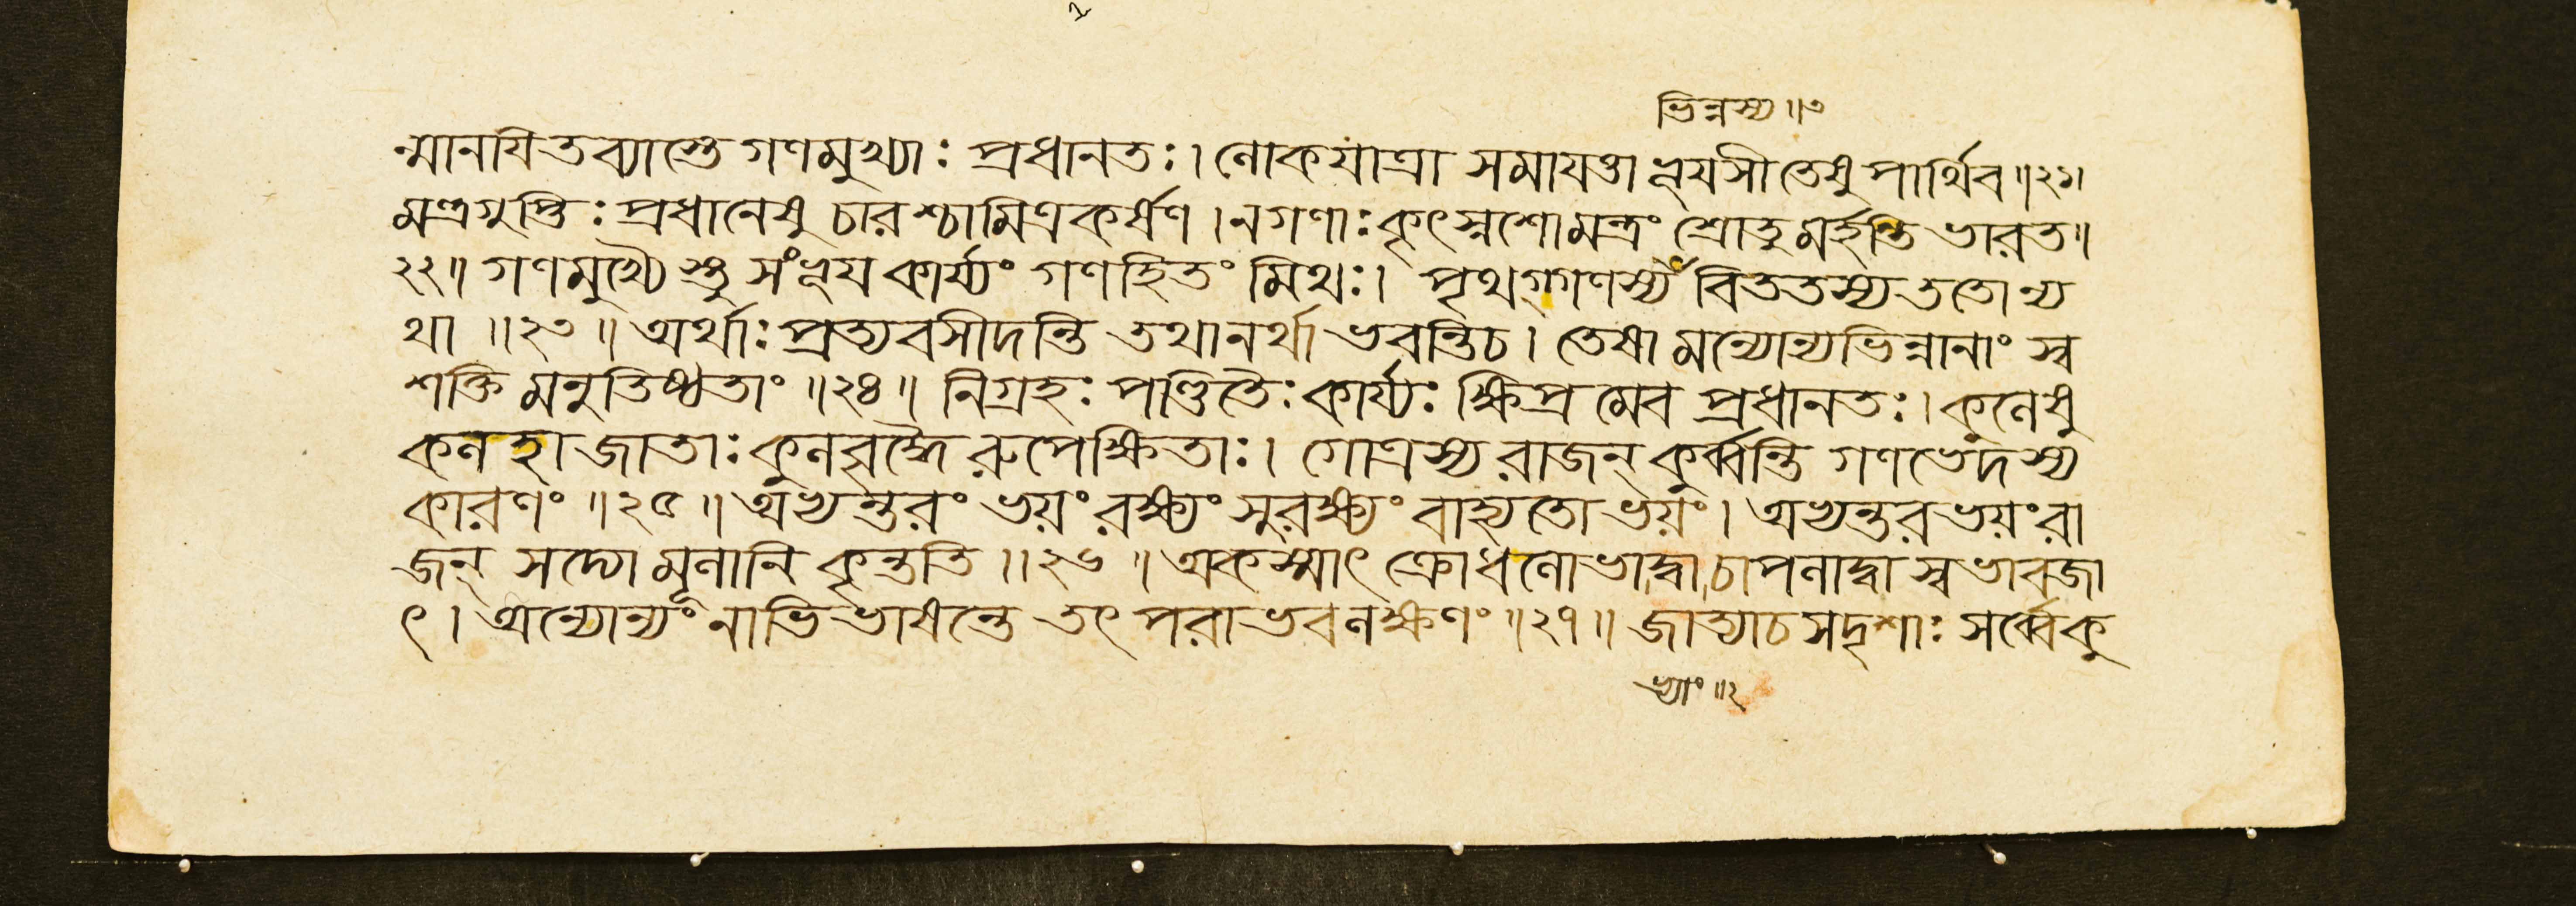 ভিন্নস্য॥৩
ন্মানযিতব্যাস্তে গণমুখ্যাঃ প্রধানতঃ। লোকযাত্রা সমাযত্তা ভূযসী তেষু পার্থিব॥২১।
মন্ত্রগুপ্তিঃ প্রধানেষু চারশ্চামিত্রকর্ষণ। ন গণাঃ কৃৎস্নশো মন্ত্রং শ্রোতুমর্হন্তি ভারত॥
২২॥ গণমুখ্যৈস্তু সংভূয কার্য্যং গণহিতং মিথঃ। পৃথগ্গণস্য বিততস্য ততোন্য
থা ॥২৩॥ অর্থাঃ প্রত্যবসীদন্তি তথানর্থা ভবন্তি চ। তেষামন্যোন্যভিন্নানাং স্ব
শক্তিমনুতিষ্ঠতাং ॥২৪॥ নিগ্রহঃ পণ্ডিতৈঃ কার্য্যঃ ক্ষিপ্রমেব প্রধানতঃ। কুলেষু
কলহা জাতাঃ কুলবৃদ্ধৈরুপেক্ষিতাঃ। গোত্রস্য রাজন্ কুর্ব্বন্তি গণভেদস্য
কারণং ॥২৫॥ অভ্যন্তরং ভয়ং রক্ষ্যং সুরক্ষ্যং বাহ্যতো ভয়ং। অভ্যন্তরভয়ং রা
জন্ সদ্যো মূলানি কৃন্ততি ॥২৬॥ অকস্মাৎ ক্রোধলোভাদ্বা চাপলাদ্বা স্বভাবজা
ৎ। অন্যোন্যং নাভিভাষন্তে তৎ পরাভবলক্ষণং ॥২৭॥ জাত্যা চ সদৃশাঃ সর্ব্বে কু
ভ্যাং॥২